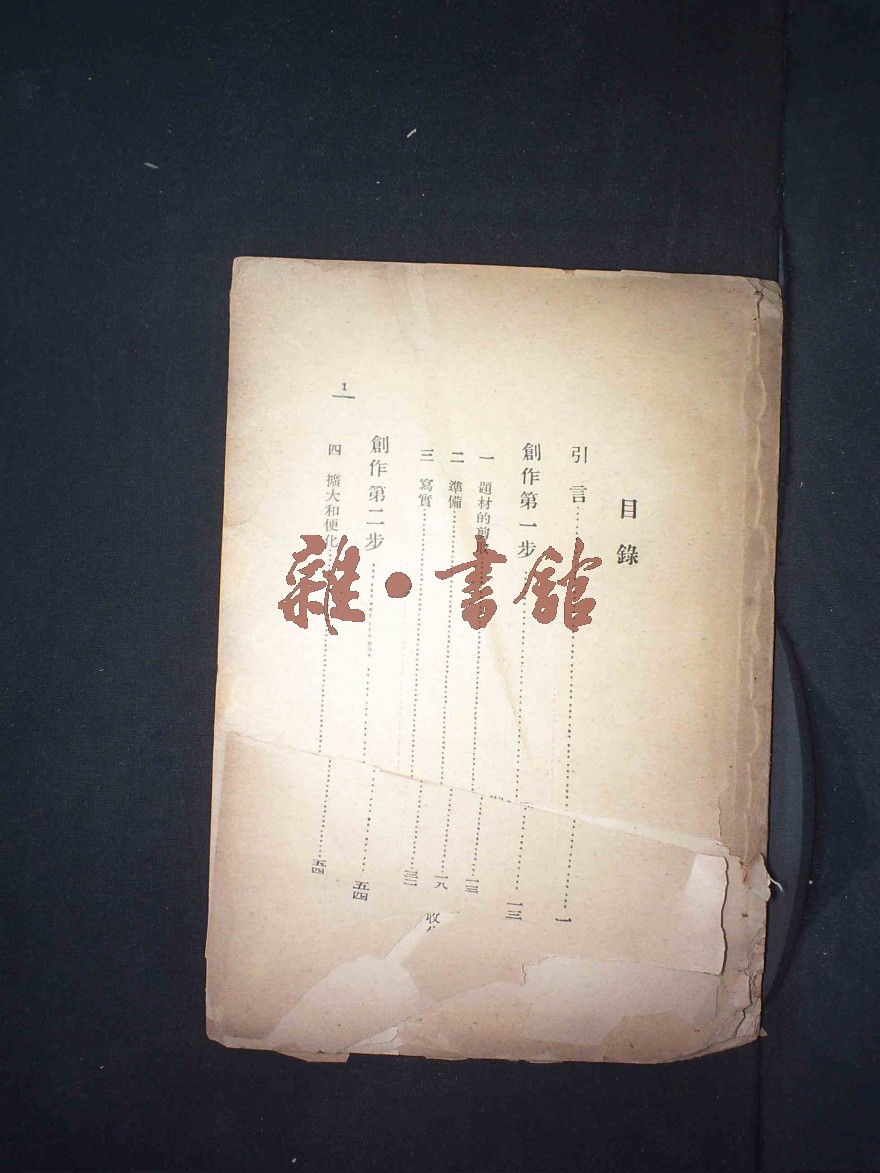 目錄
引言……一
創作第一步……一三
一 題材的剪取……一三
二 準備……一八
三 寫實……三二
創作第二步……五四
四 擴大和便化……五四
1
收
雜·書館